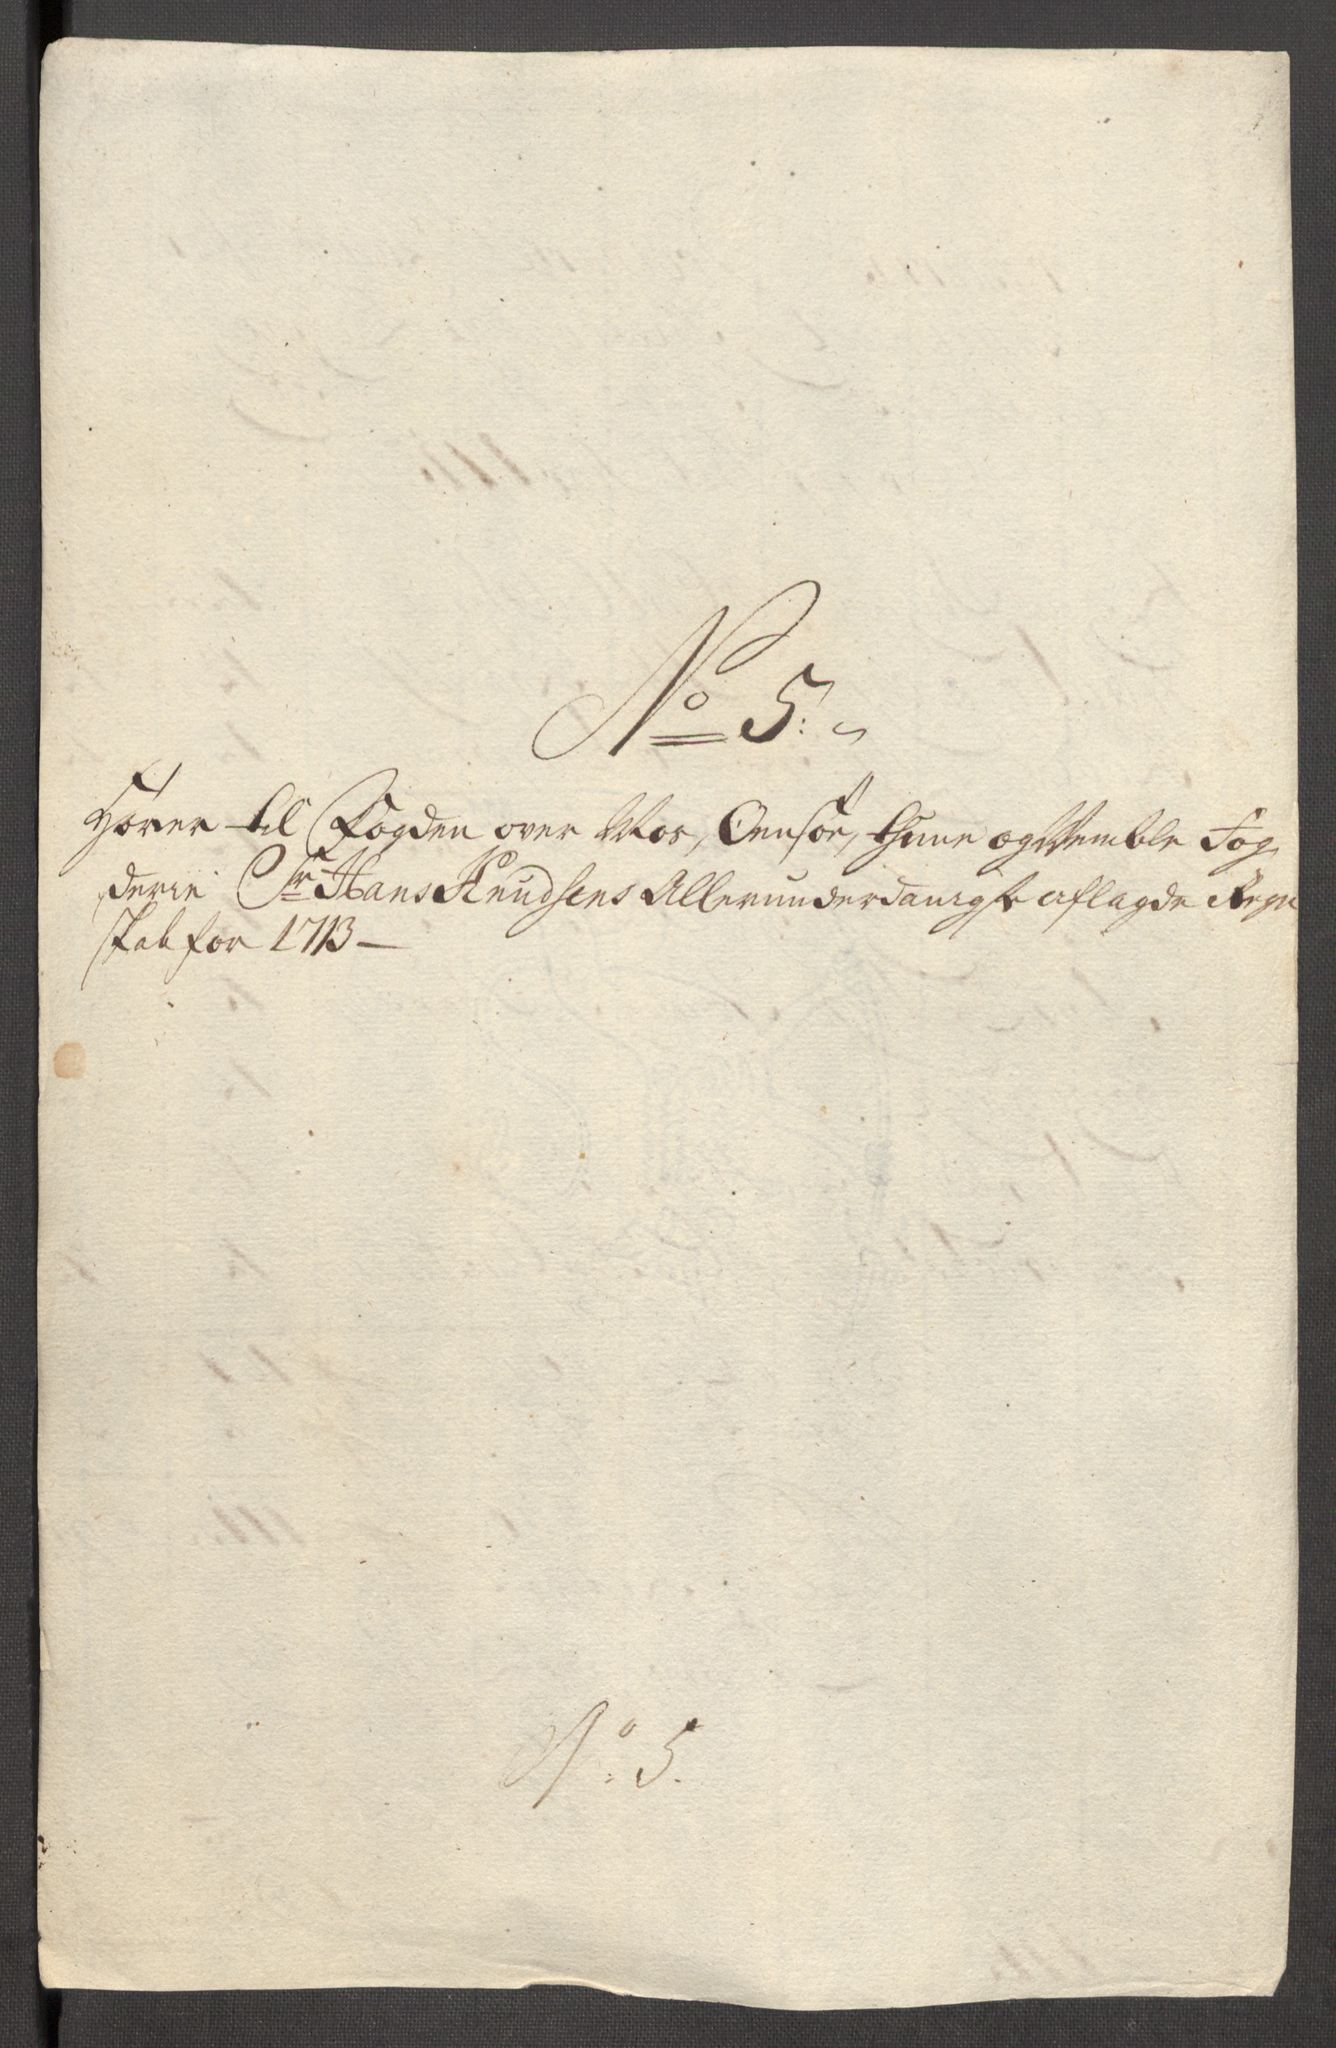 No 5.
Hører til Fogden over Mos, Oensøe, thune og Wemble Fog
derie Sr Hans Knudsens Allerunderdanigst aflagde Regn
skab for 1713 –
No. 5.